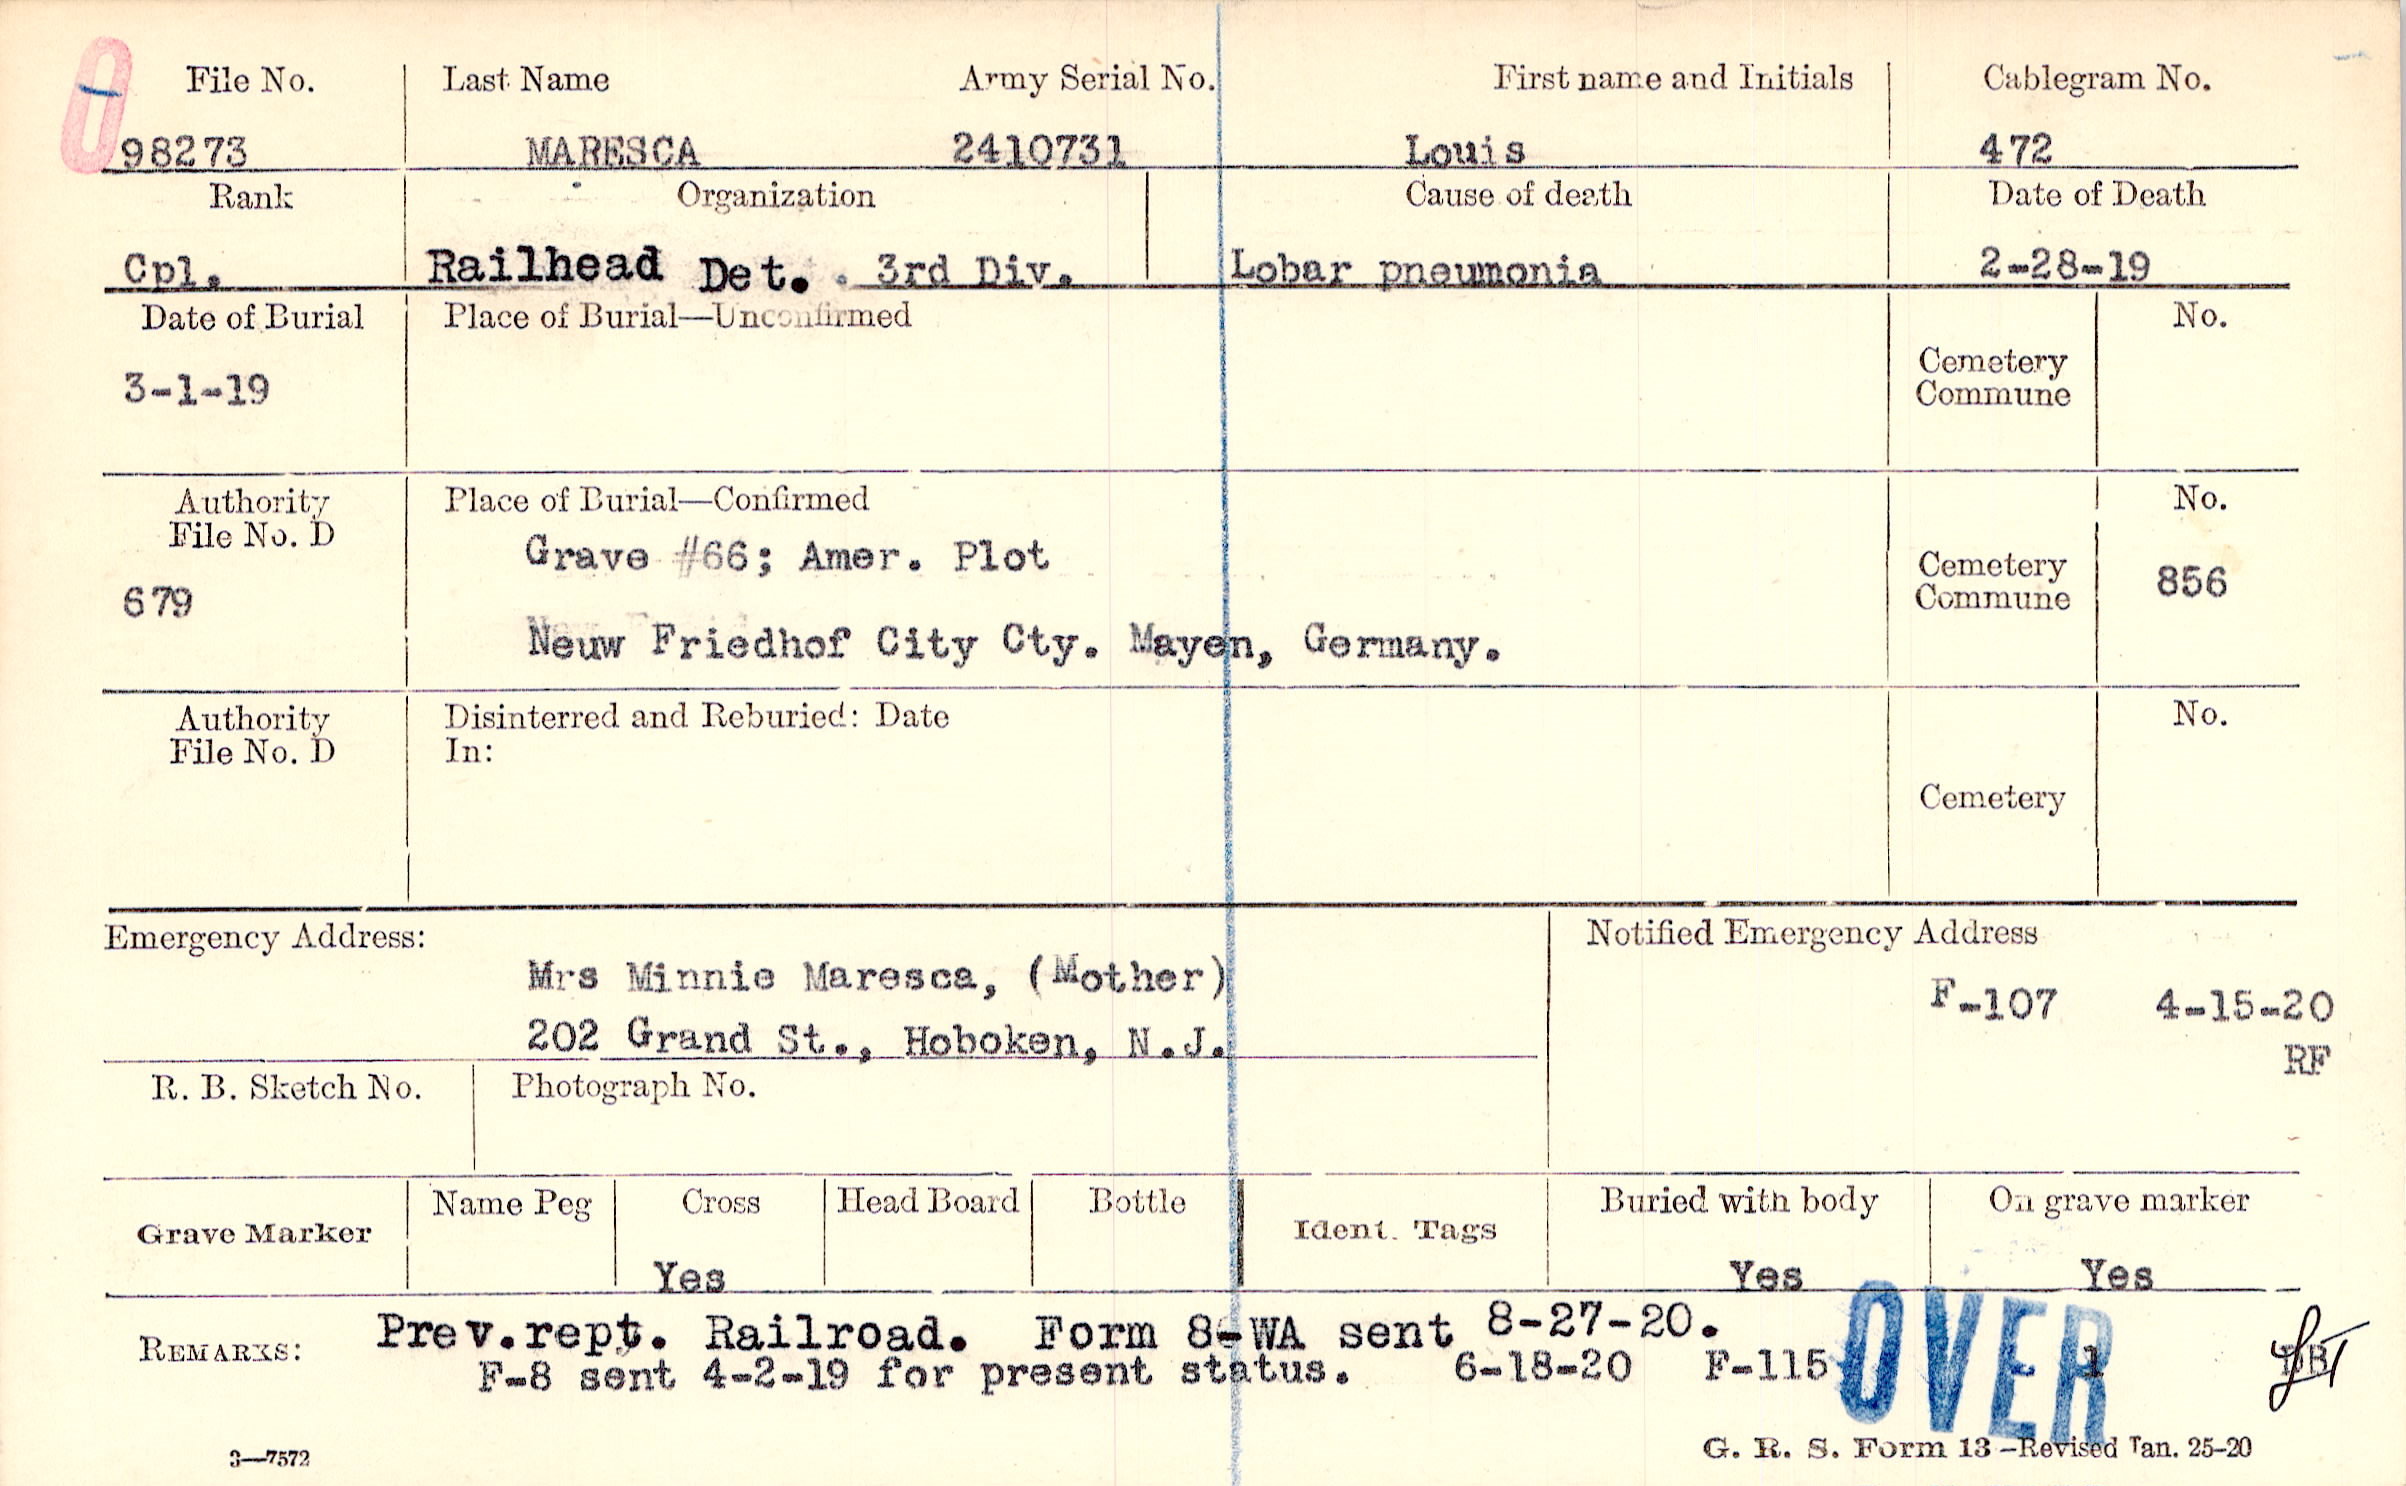 File No. Last Name Army Serial No. First name and Initials Cablegram No.
98273 MARESCA 2410731 Louis 472
Rank Organization Cause of death Date of Death
Cpl. Railhead Det. 3rd Div. Lobar pneumonia 2-28-19
Date of Burial Place of Burial—Unconfirmed No.
Cemetery
3-1-19 Commune
Authority Place of Burial—Confirmed No.
File No. D
Grave #66; Amer. Plot Cemetery
679 Commune 856
Neuw Friedhof City Cty. Mayen, Germany.
Authority Disinterred and Reburied: Date No.
File No. D In:
Cemetery
Emergency Address: Notified Emergency Address
Mrs Minnie Maresca, (Mother) F-107 4-15-20
202 Grand St., Hoboken, N.J. RF
R. B. Sketch No. Photograph No.
Name Peg Cross Head Board Bottle Buried with body On grave marker
Grave Marker Ident. Tags
Yes Yes Yes
REMARKS: Prev.rept. Railroad. Form 8-WA sent 8-27-20.
F-8 sent 4-2-19 for present status. 6-18-20 F-115 1
OVER
3—7572 G. R. S. Form 13—Revised Jan. 25-20